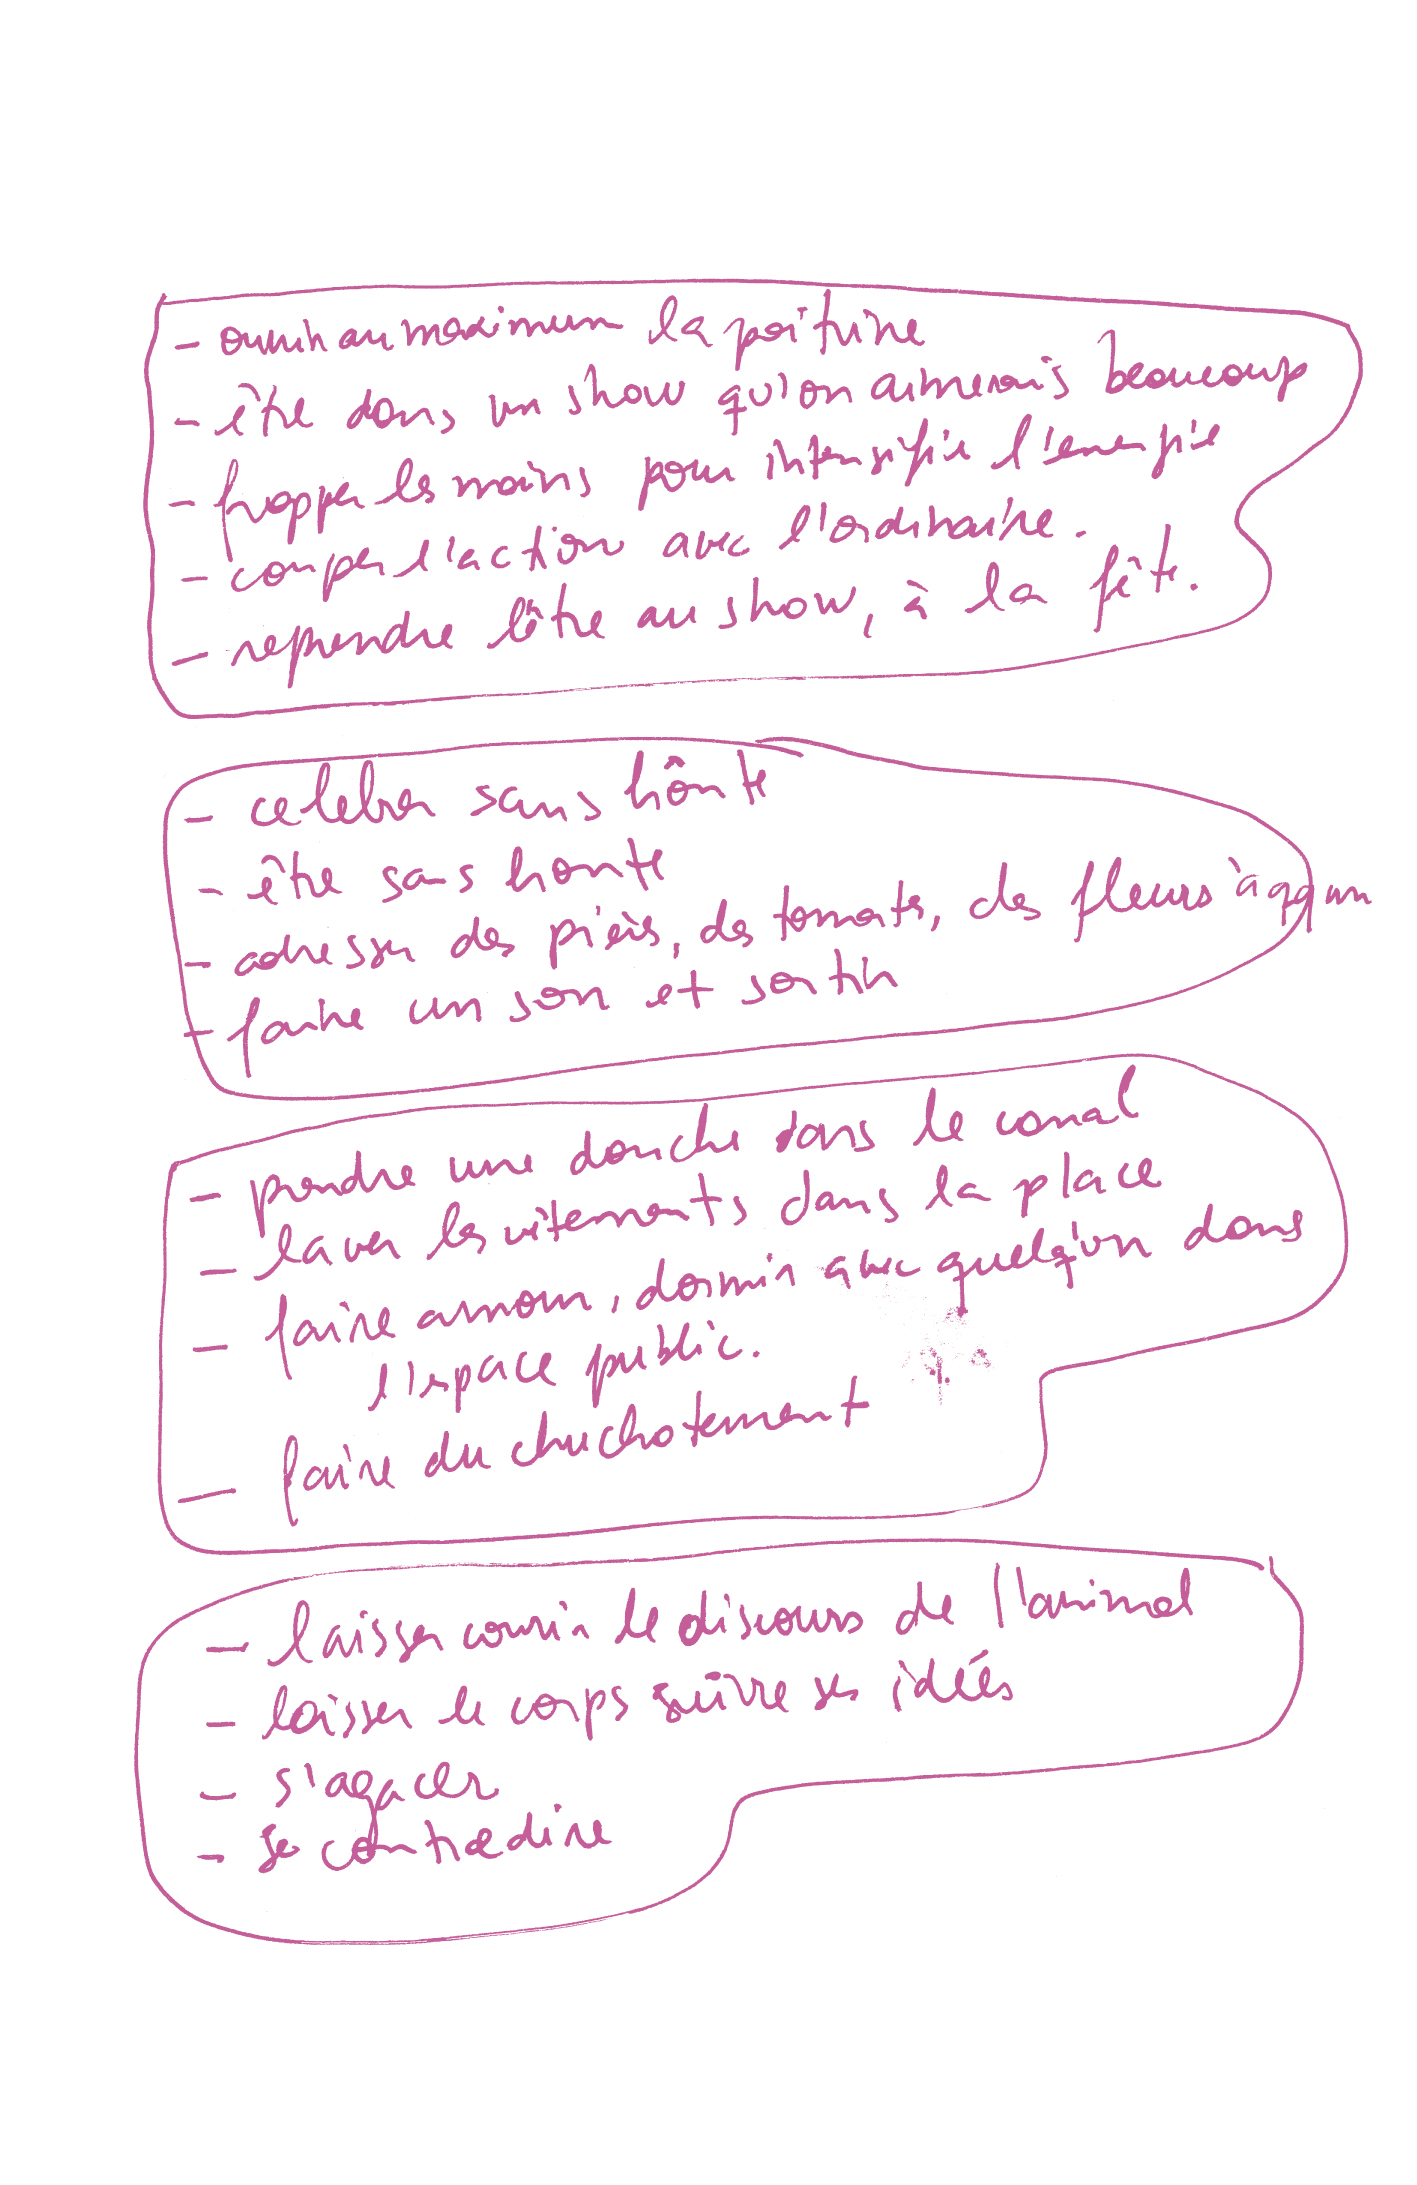 - ouvrir au maximum la poitrine
- être dans un show qu'on aimerais beaucoup
- frapper les mains pour intensifie l'energie
- couper l'action avec l'ordinaire.
- reprendre l'être au show, à la fête.
- celebrer sans hônte
- être sans honte
- adresser des piéis, des tomates, des fleurs à qq un
- faire un son et sortir
- prendre une douche dans le canal
- laver les vêtements dans la place
- faire amour, dormir avec quelq'un dans
l'espace public.
- faire du chuchotement
- laisser courir le discours de l'animal
- laisser le corps suivre ses idées
- s'agacer
- se contredire